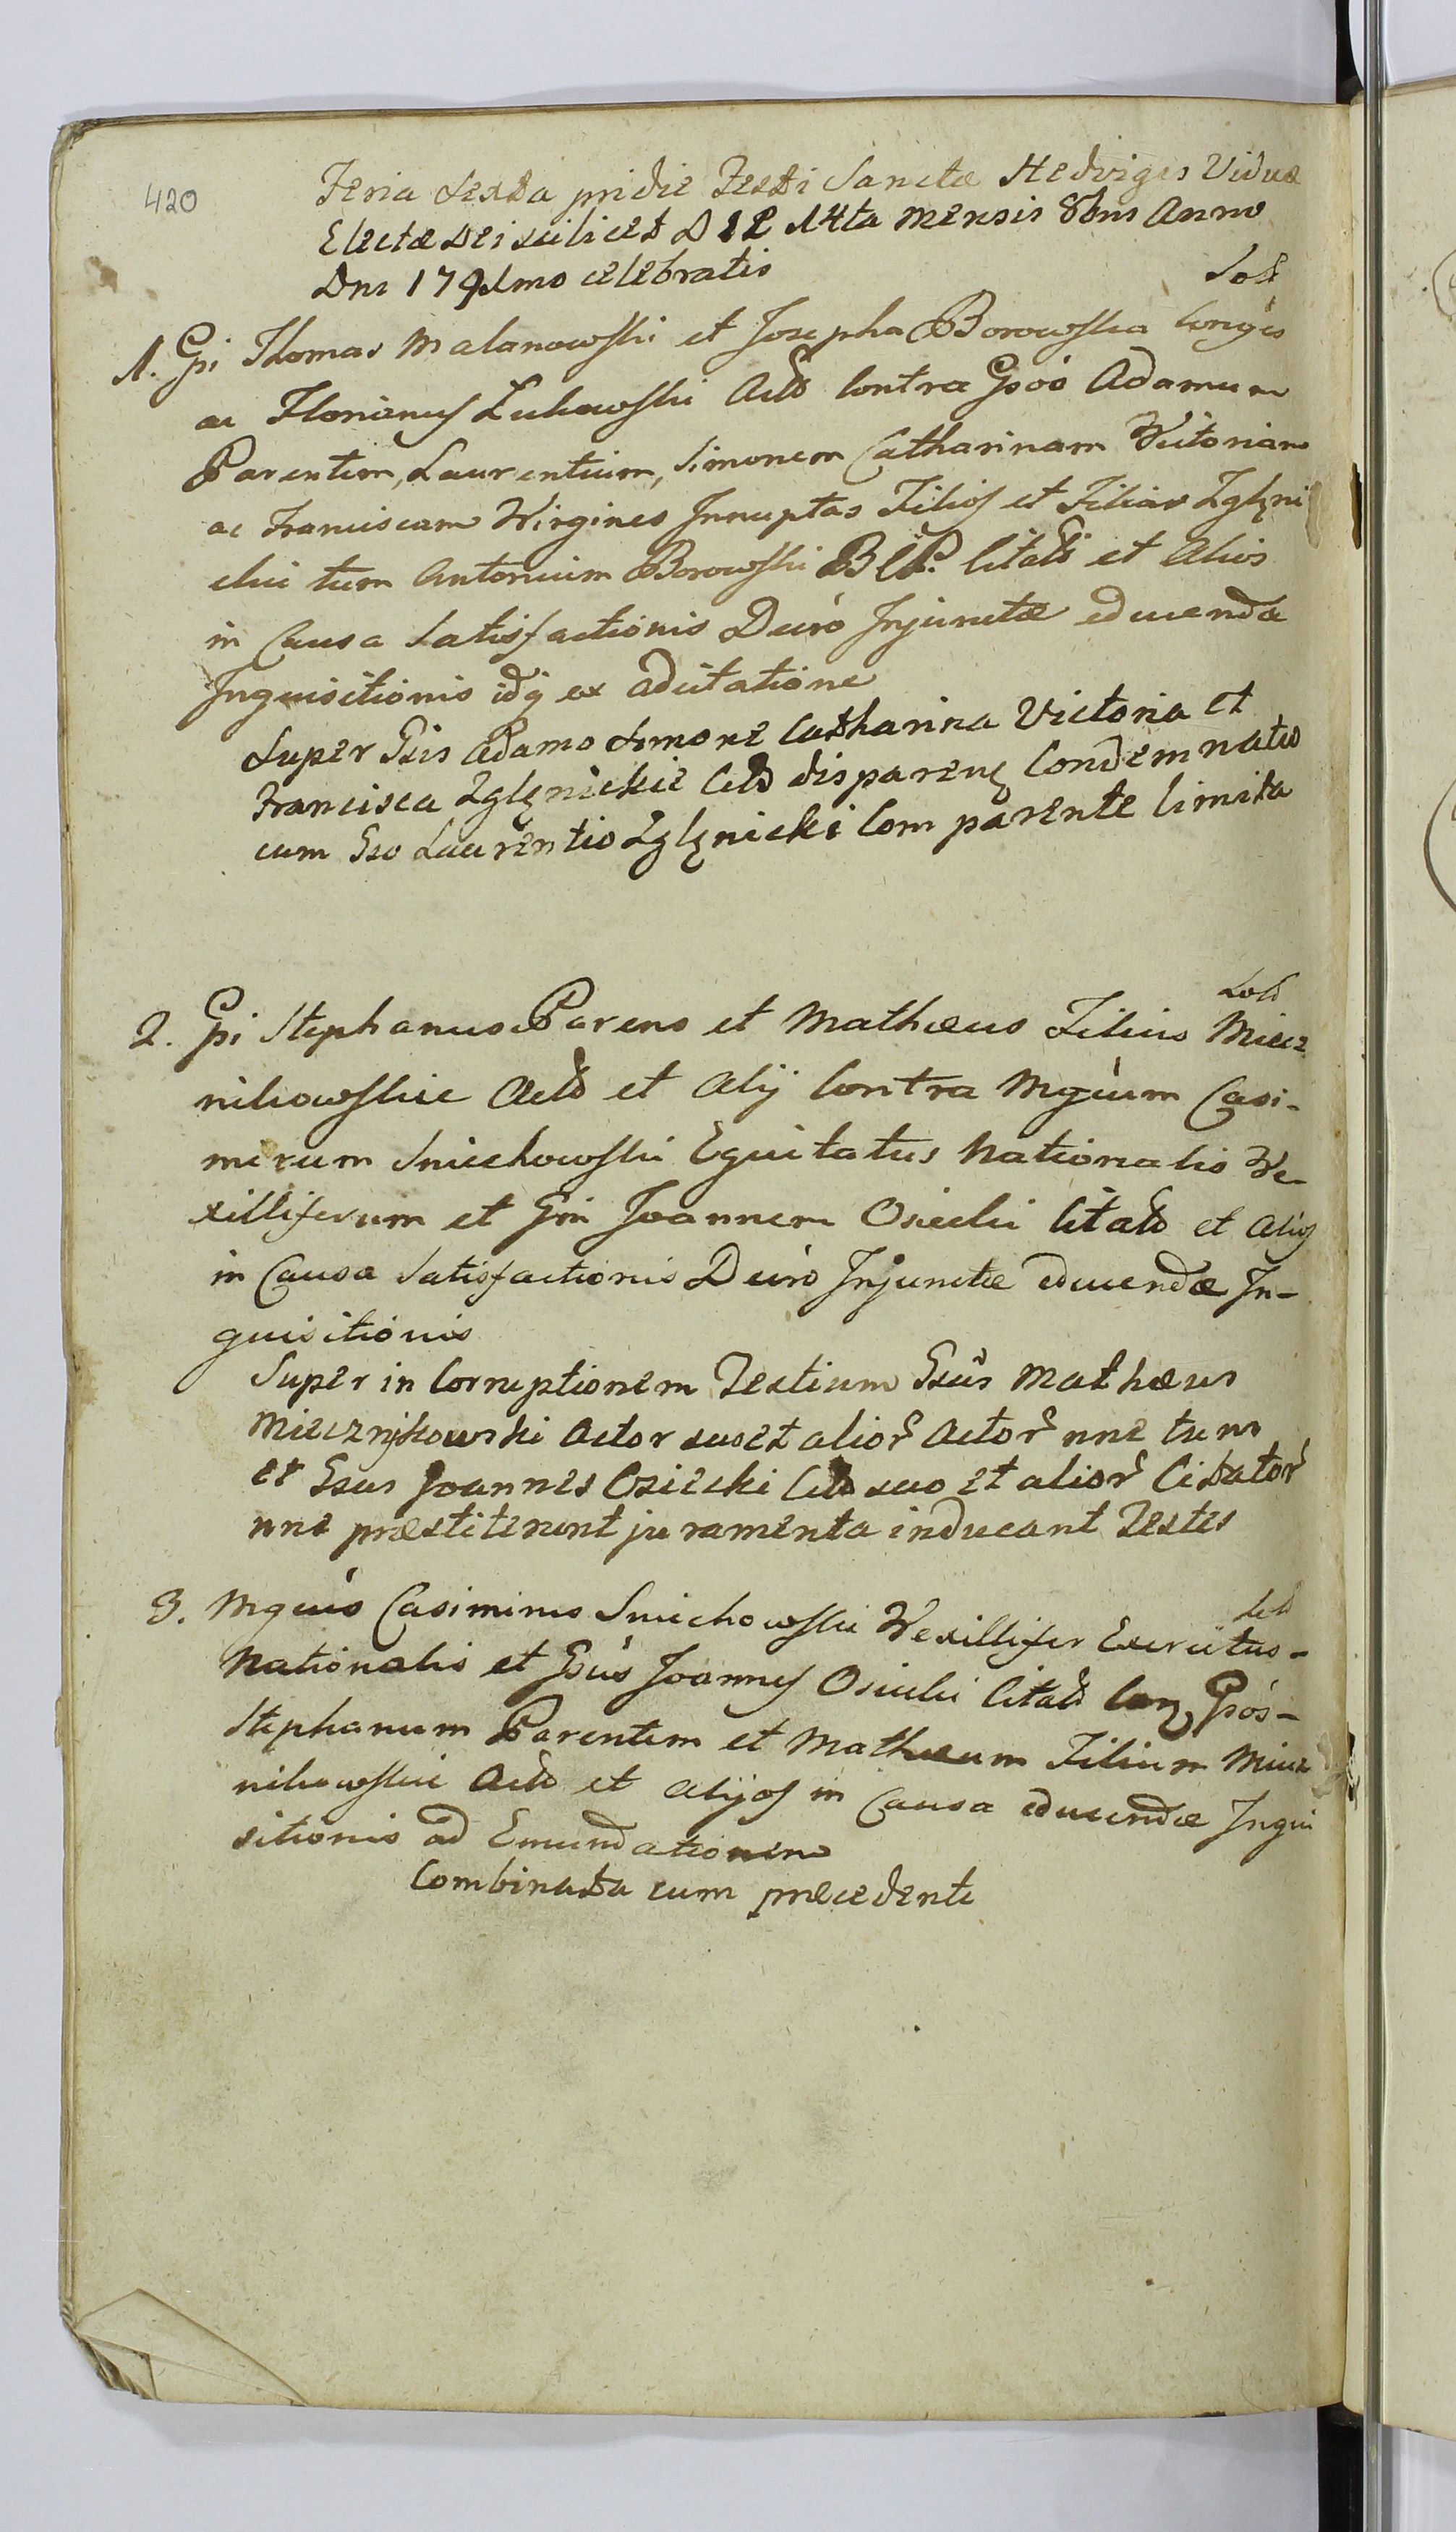 420
Feria Sexta pridie Festi Sanctæ Hedvigis Viduæ
Electæ Dei scilicet D 14ta Mensis 8bris Anno
Dni 1791mo celebratis
Sol
1. Gsi Thomas Malanowski et Josepha Borowska Conges
ac Florianus Łukowski Act contra Gsos Adamum
Parentem, Laurentium, Simonem Catharinam Victoriam
ac Franciscam Virgines Innuptas Filios et Filias Zglęni
ckie tum Antonium Borowski Citat et Alios
in Causa Satisfactionis Decro Injunctæ educendæ
Inquisitionis idq ex adcitatione
Super Gsis Adamo Simone Catharina Victoria et
Francisca Zglęnickie Citt disparen Condemnatio
cum Gso Laurentio Zglęnicki Comparente limita
Sol
2. Gsi Stephanus Parens et Mathæus Filius Miecz
nikowskie Act et Alij Contra Mgcum Casi-
mirum Sniechowski Equitatus Nationalis Ve-
xilliferum et Gsm Joannem Osiecki Citat et Alios
in Causa Satisfactionis Decro Injunctæ educendæ In-
quisitionis
Super in Corruptionem Testium Gsus Mathæus
Miecznikowski Actor suo et alior Actor nne tum
et Gsus Joannes Osiecki Citt suo et alior Citator
nne præstiterunt juramenta inducant Testes
Sol
3. Mgcus Casimirus Sniechowski Vexillifer Exercitus-
Nationalis et Gsus Joannes Osiecki Citat Con Gsos-
Stephanum Parentem et Mathæum Filium Miecz
nikowskie Act et Alijos in Causa educendæ Inqui
sitionis ad Emundationem
Combinata cum præcedente